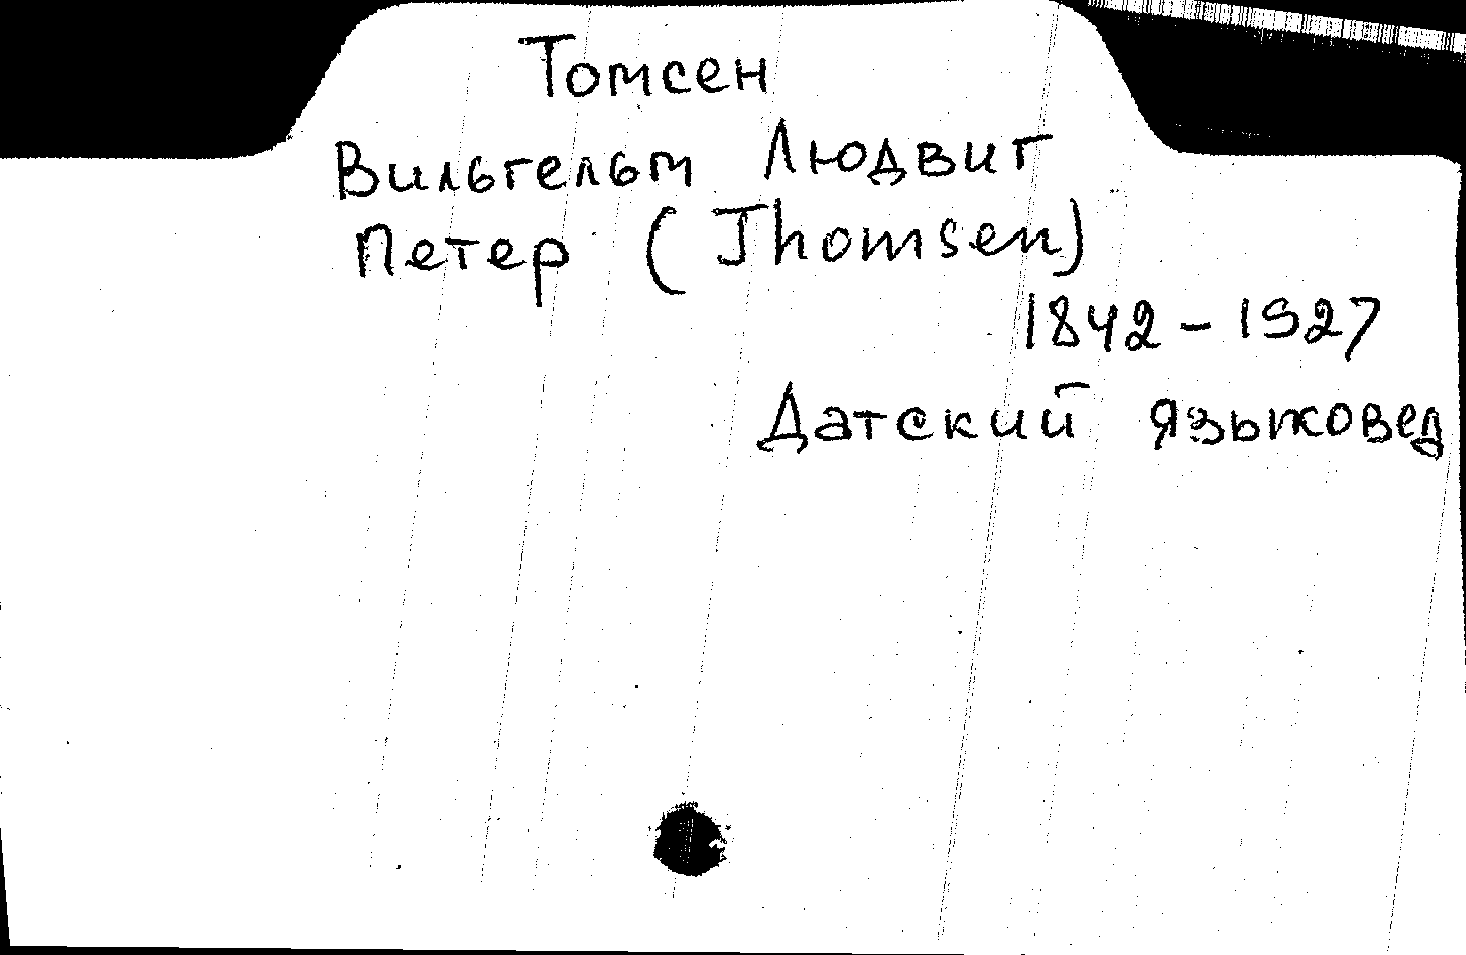 Томсен
Вильгельм Людвиг
Петер (Thomsen)
1842-1927
Датский языковед